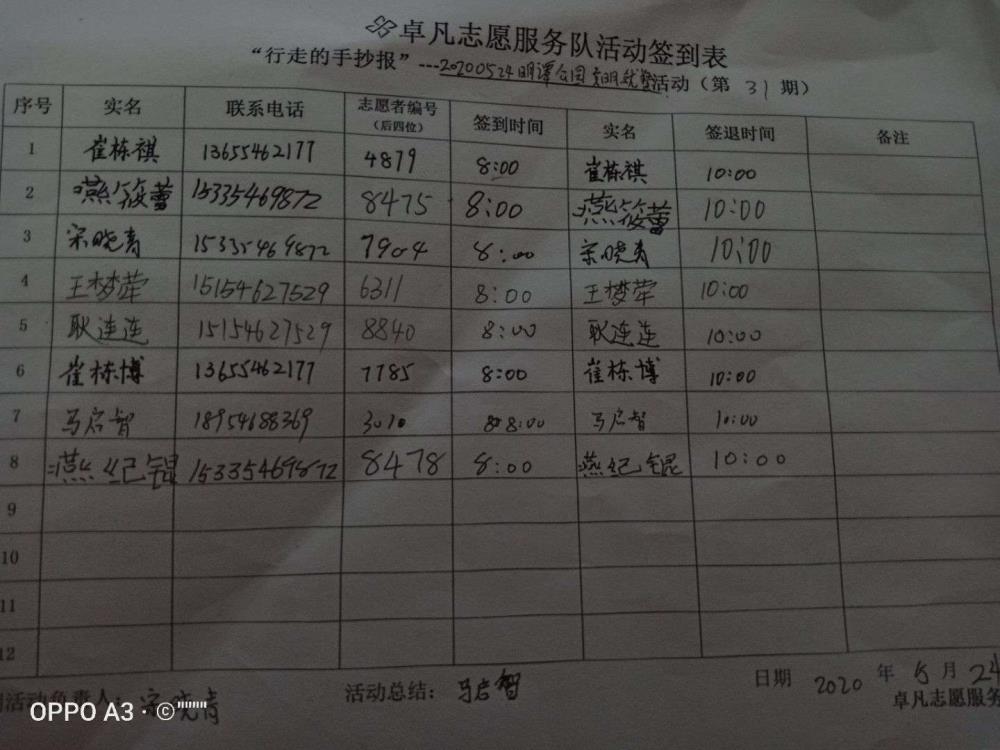 卓凡志愿服务队活动签到表
“行走的手抄报”---20200524明潭公园文明就餐活动（第 31 期）
序号 实名 联系电话 志愿者编号（后四位） 签到时间 实名 签退时间 备注
1 崔栋祺 13655462177 4879 8:00 崔栋祺 10:00
2 燕筱蕾 15335469872 8475 8:00 燕筱蕾 10:00
3 宋晓青 15335469872 7904 8:00 宋晓青 10:00
4 王梦荦 15154627529 6311 8:00 王梦荦 10:00
5 耿连连 15154627529 8840 8:00 耿连连 10:00
6 崔栋博 13655462177 7785 8:00 崔栋博 10:00
7 马启智 18954688369 3010 8:00 马启智 10:00
8 燕纪锟 15335469872 8478 8:00 燕纪锟 10:00
9
10
11
12
活动负责人：宋晓青 活动总结：马启智 日期 2020 年 5 月 24
卓凡志愿服务
OPPO A3 · ©""""